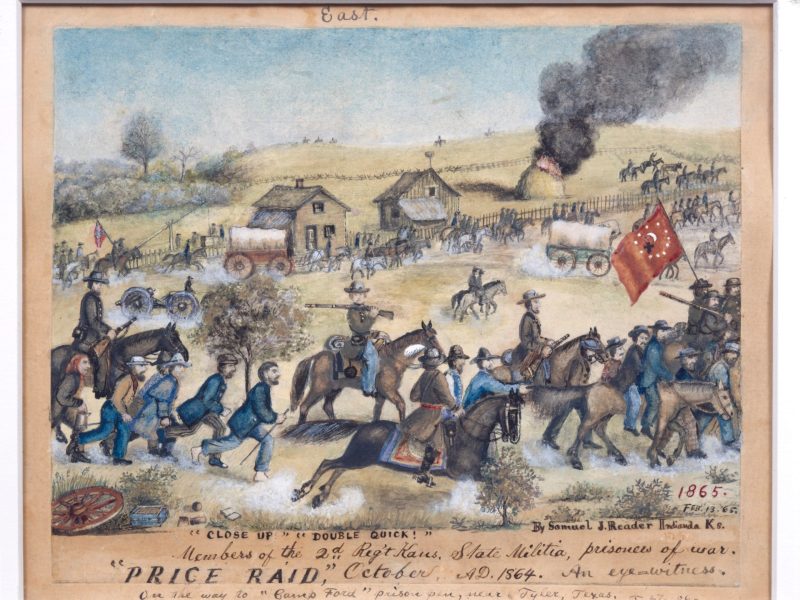 East.
1865.
Feb. 13. 65.
By Samuel J. Reader Indianola Ks.
"CLOSE UP" "DOUBLE QUICK!"
Members of the 2d. Reg't Kans, State Militia, prisoners of war.
"PRICE RAID," October, A.D. 1864. An eye-witness.
On the way to "Camp Ford" prison pen, near Tyler, Texas.